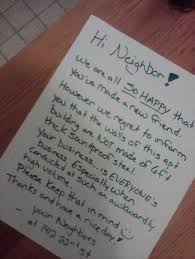 Hi Neighbor!
We are all SO HAPPY that
you've made a new friend.
However we regret to inform
you that the walls of this apt
building are NOT made of 6ft
thick Soundproof steel.
your business is EVERYONE'S
business. Especially when
conducted at such an awkwardly
high volume.
Please keep that in mind
Thanks and have a nice day!
- your Neighbors
at 1412 22nd st